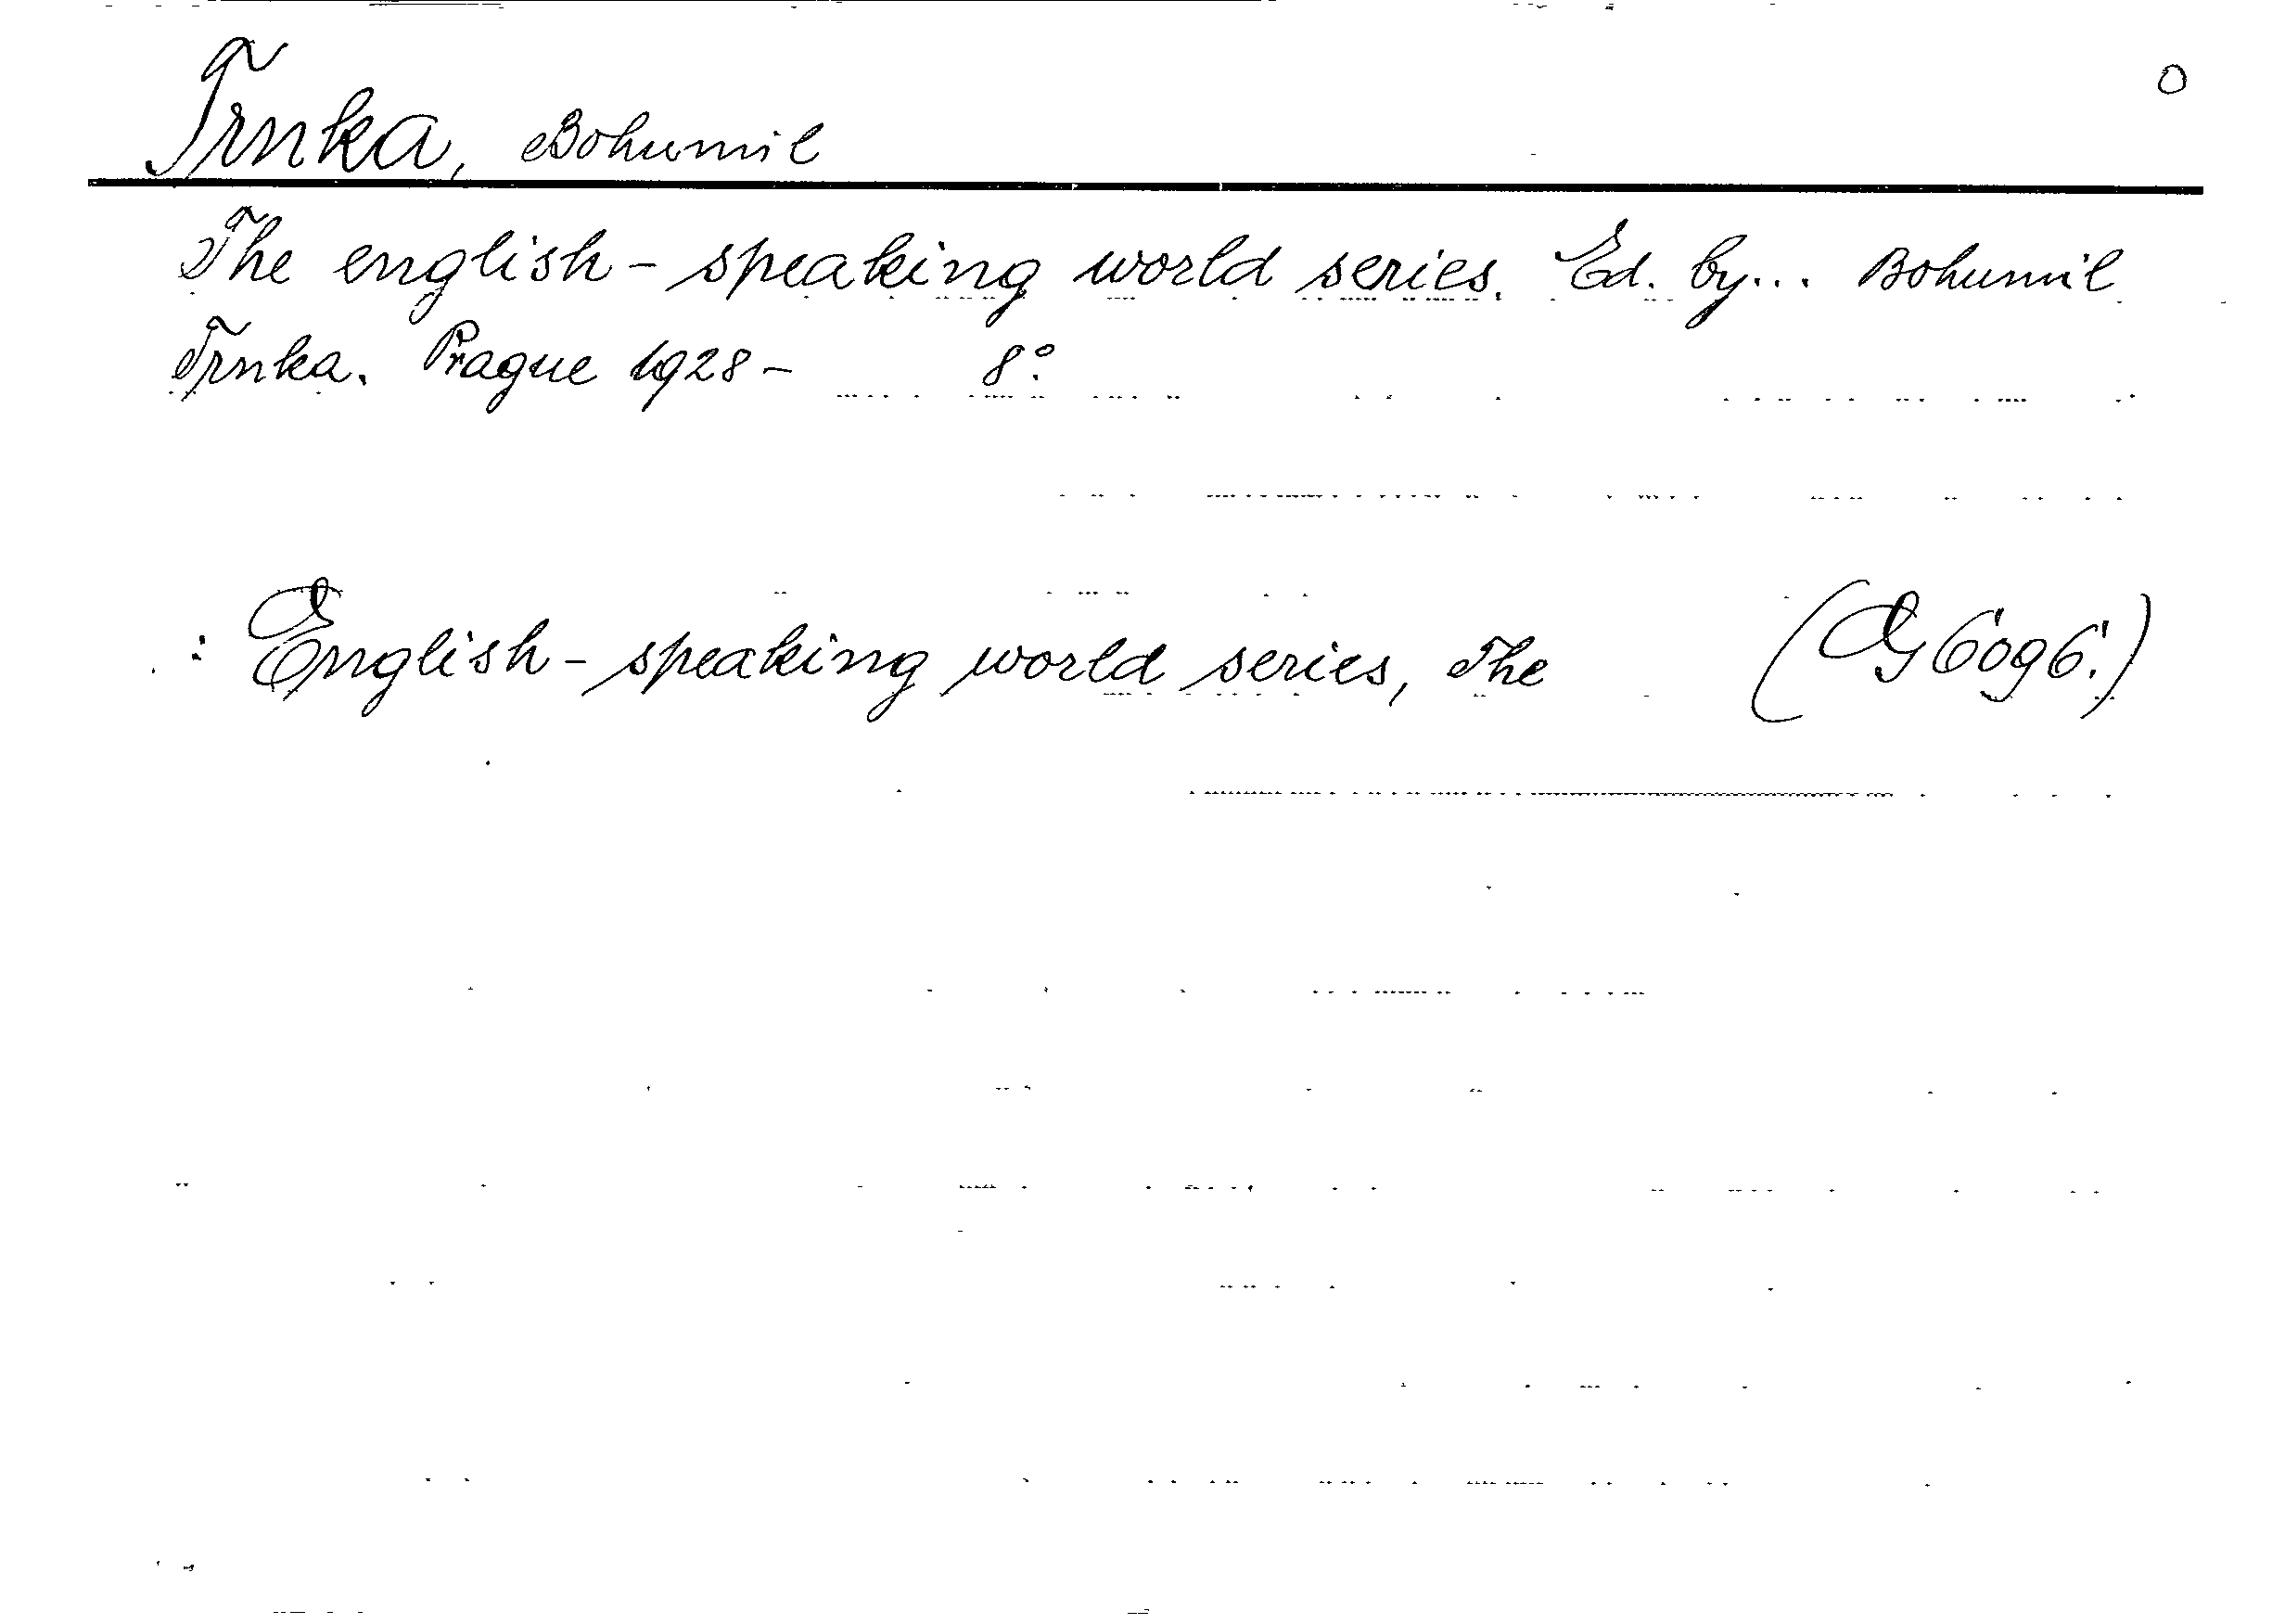 O
Trnka, Bohumil
The english-speaking world series. Ed. by... Bohumil
Trnka. Prague 1928- 8°.
: English-speaking world series, The (G 6096.)